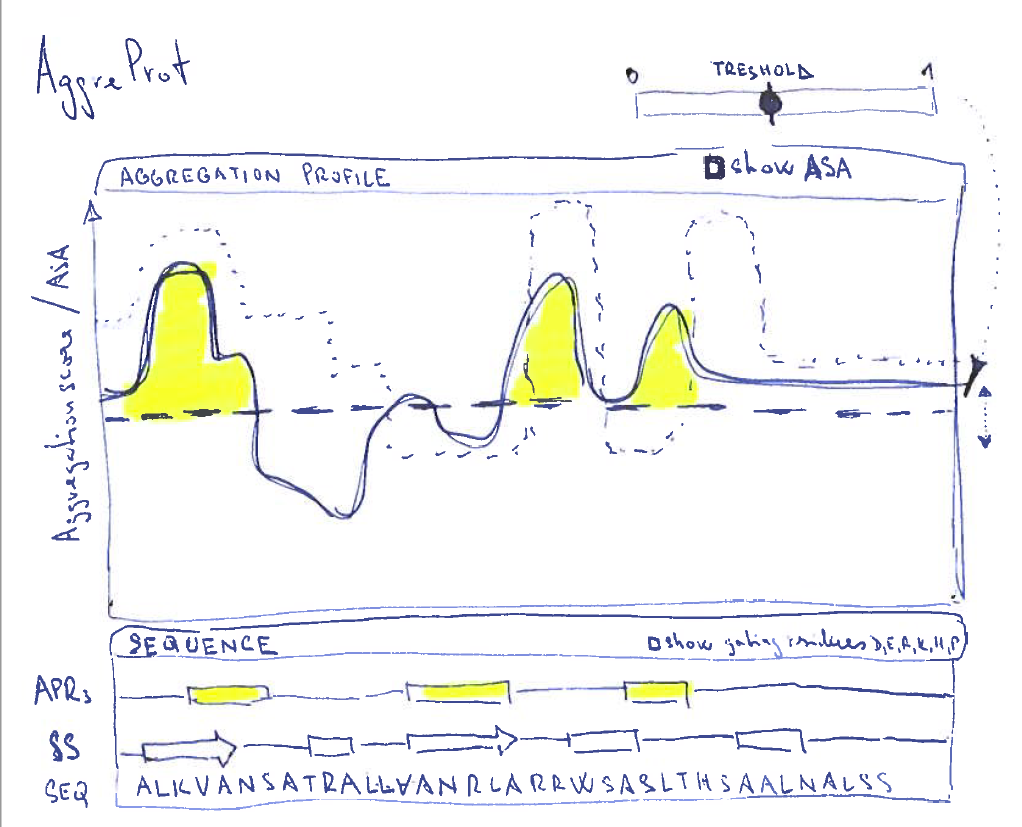 AggreProt
0 TRESHOLD 1
AGGREGATION PROFILE
show ASA
Aggregation score / ASA
SEQUENCE
show gating residues D,E,R,K,H,P
APRs
SS
SEQ ALKVANSATRALLVANRLARRWSASLTHSAALNALSS